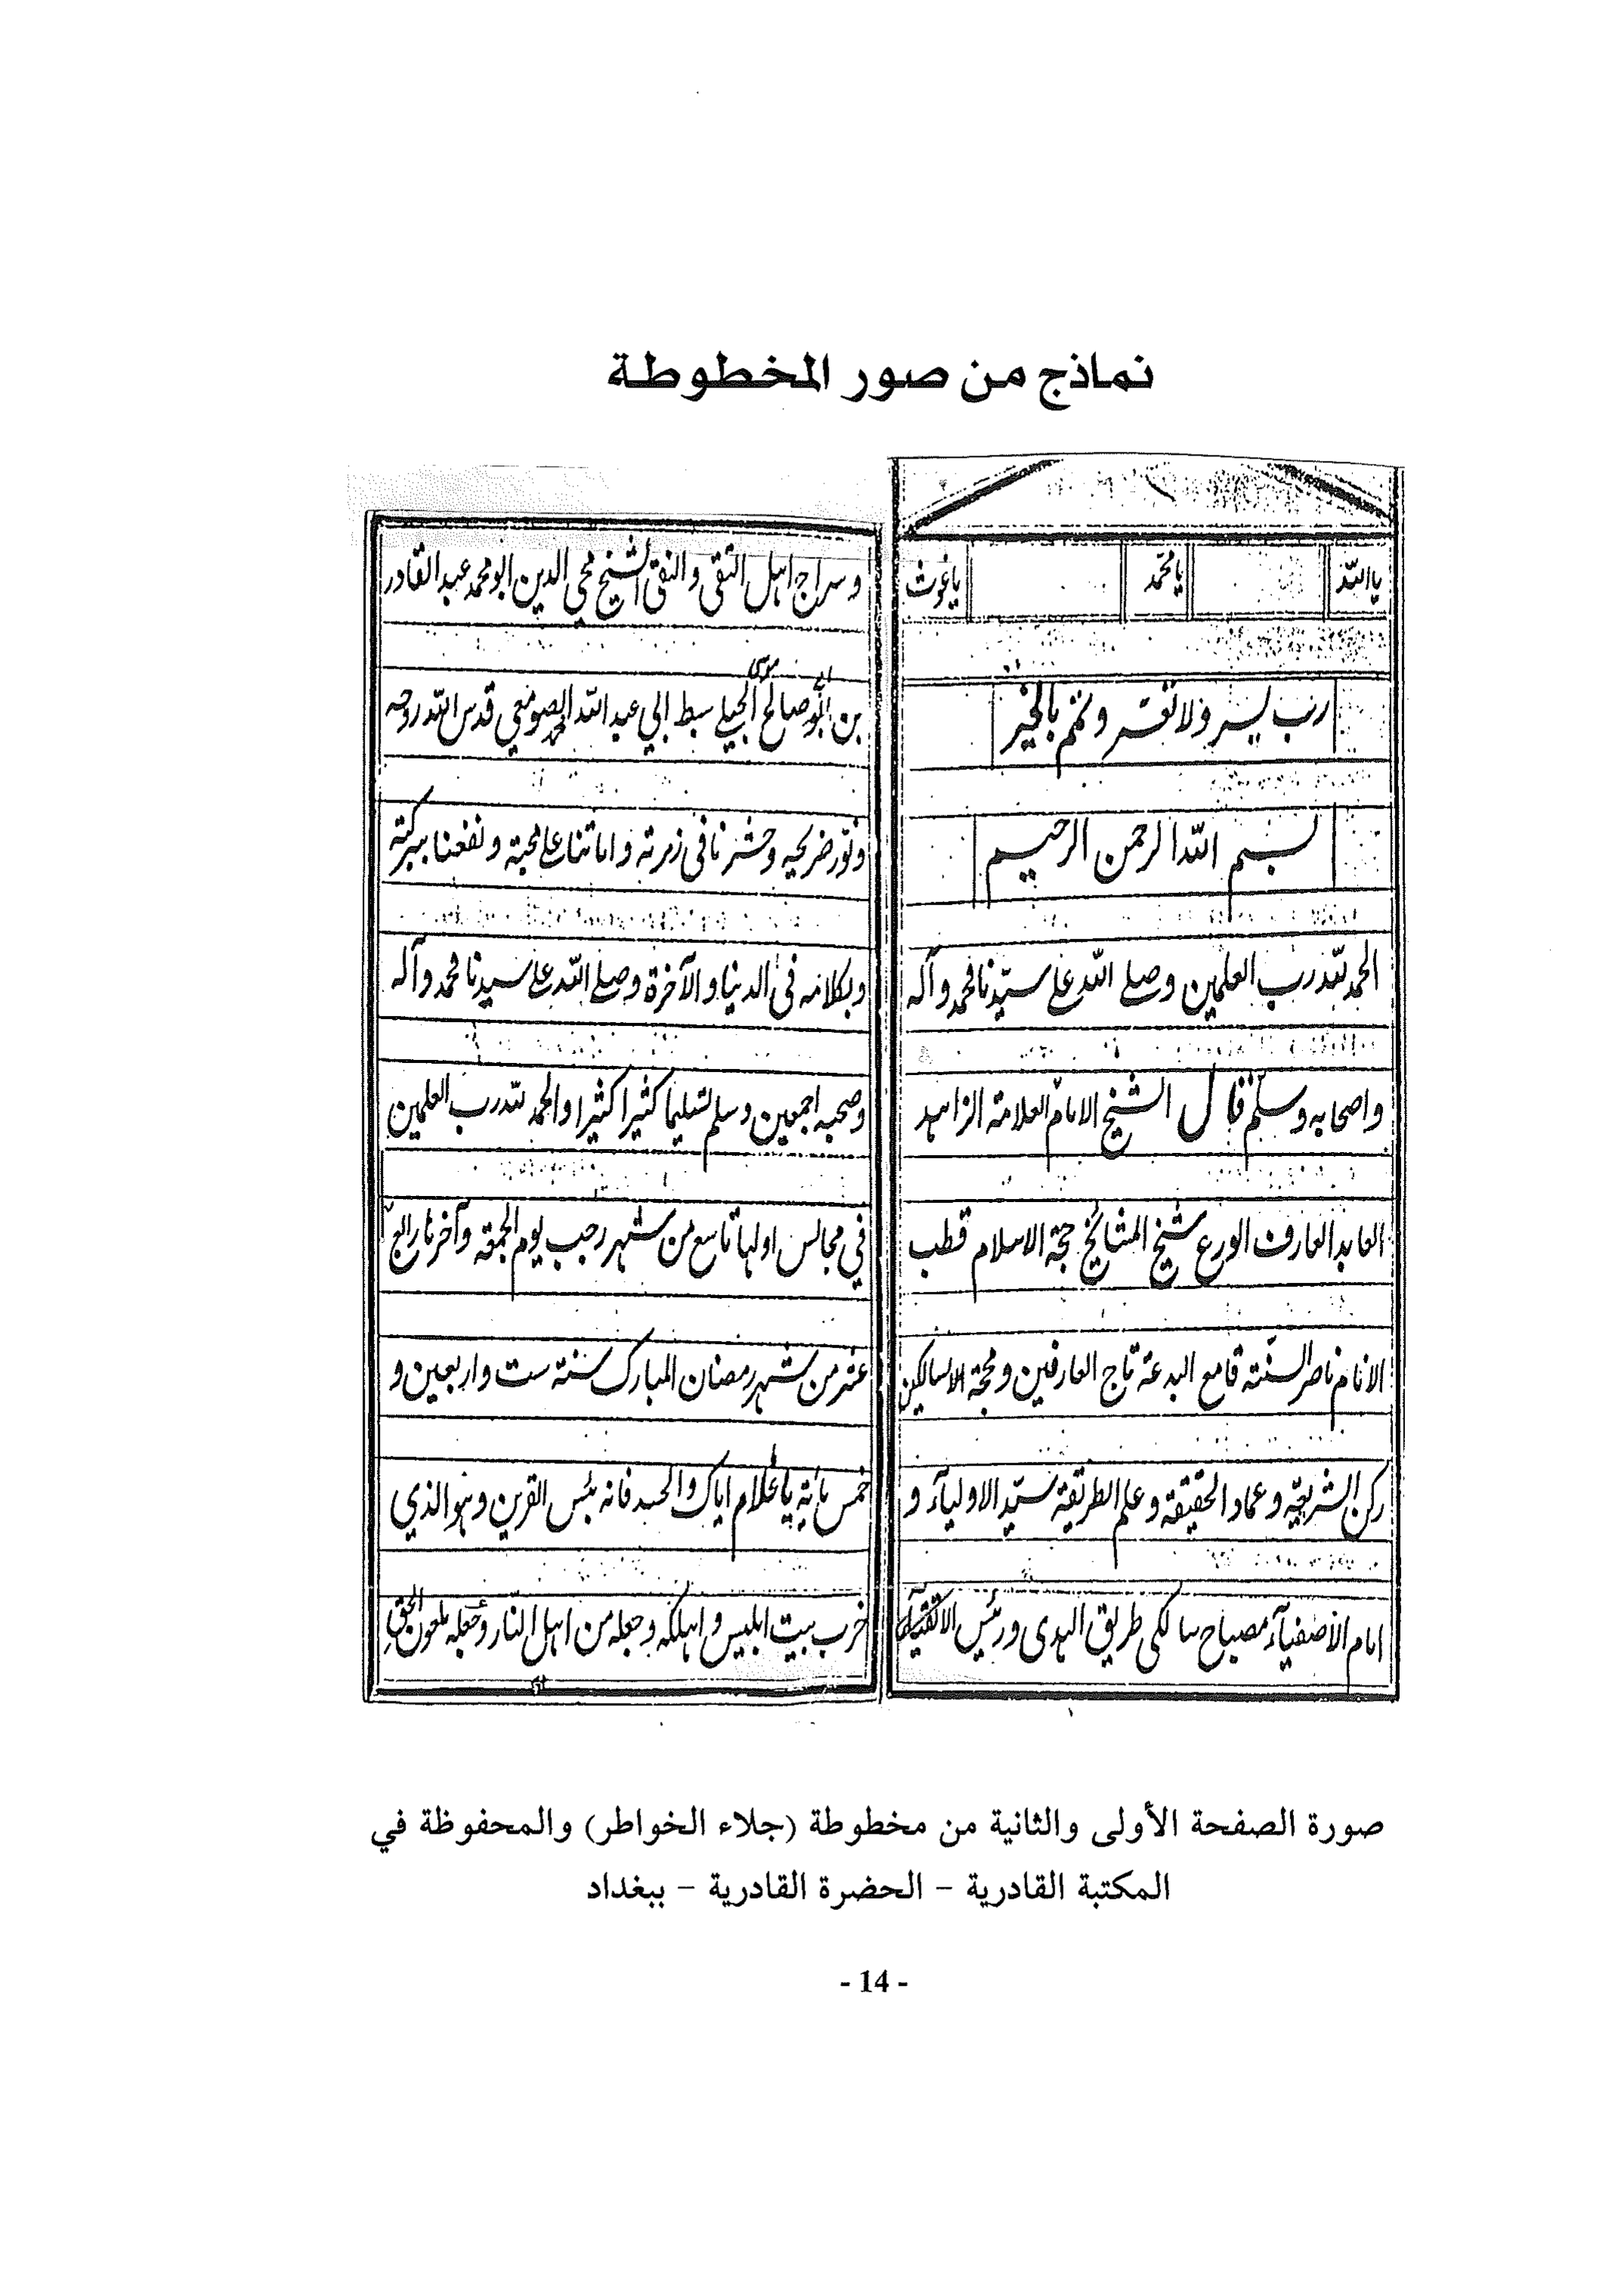 نماذج من صور المخطوطة
يا الله
يا محمد
يا غوث
رب يسر ولا تعسر وتمم بالخير
بسم الله الرحمن الرحيم
الحمد لله رب العلمين وصلى الله على سيّدنا محمد وآله
واصحابه وسلم قال الشيخ الامام العلامة الزاهد
العابد العارف الورع شيخ المشائخ حجة الاسلام قطب
الانام ناصر السنّة قامع البدعة تاج العارفين ومحجة السالكين
ركن الشريعة وعماد الحقيقة وعلم الطريقة سيّد الاوليآء و
امام الاصفيآء مصباح سالكى طريق الهدى ورئيس الاتقيآء
وسراج اهل التقى والنقى الشيخ محي الدين ابو محمد عبد القادر
بن ابو صالح موسى الجيلي سبط ابي عبد الله الصومعي قدس الله روحه
ونوّر ضريحه وحشرنا في زمرته واماتنا على محبته ونفعنا ببركته
وبكلامه في الدنيا والآخرة وصلى الله على سيدنا محمد وآله
وصحبه اجمعين وسلم تسليما كثيرا كثيرا والحمد لله رب العلمين
في مجالس اولها تاسع من شهر رجب يوم الجمعة وآخرها رابع
عشر من شهر رمضان المبارك سنة ست واربعين و
خمس مائة يا غلام اياك والحسد فانه بئس القرين وهو الذي
خرب بيت ابليس واهلكه وجعله من اهل النار وجعله ملعون الحق
صورة الصفحة الأولى والثانية من مخطوطة (جلاء الخواطر) والمحفوظة في
المكتبة القادرية – الحضرة القادرية – ببغداد
- 14 -